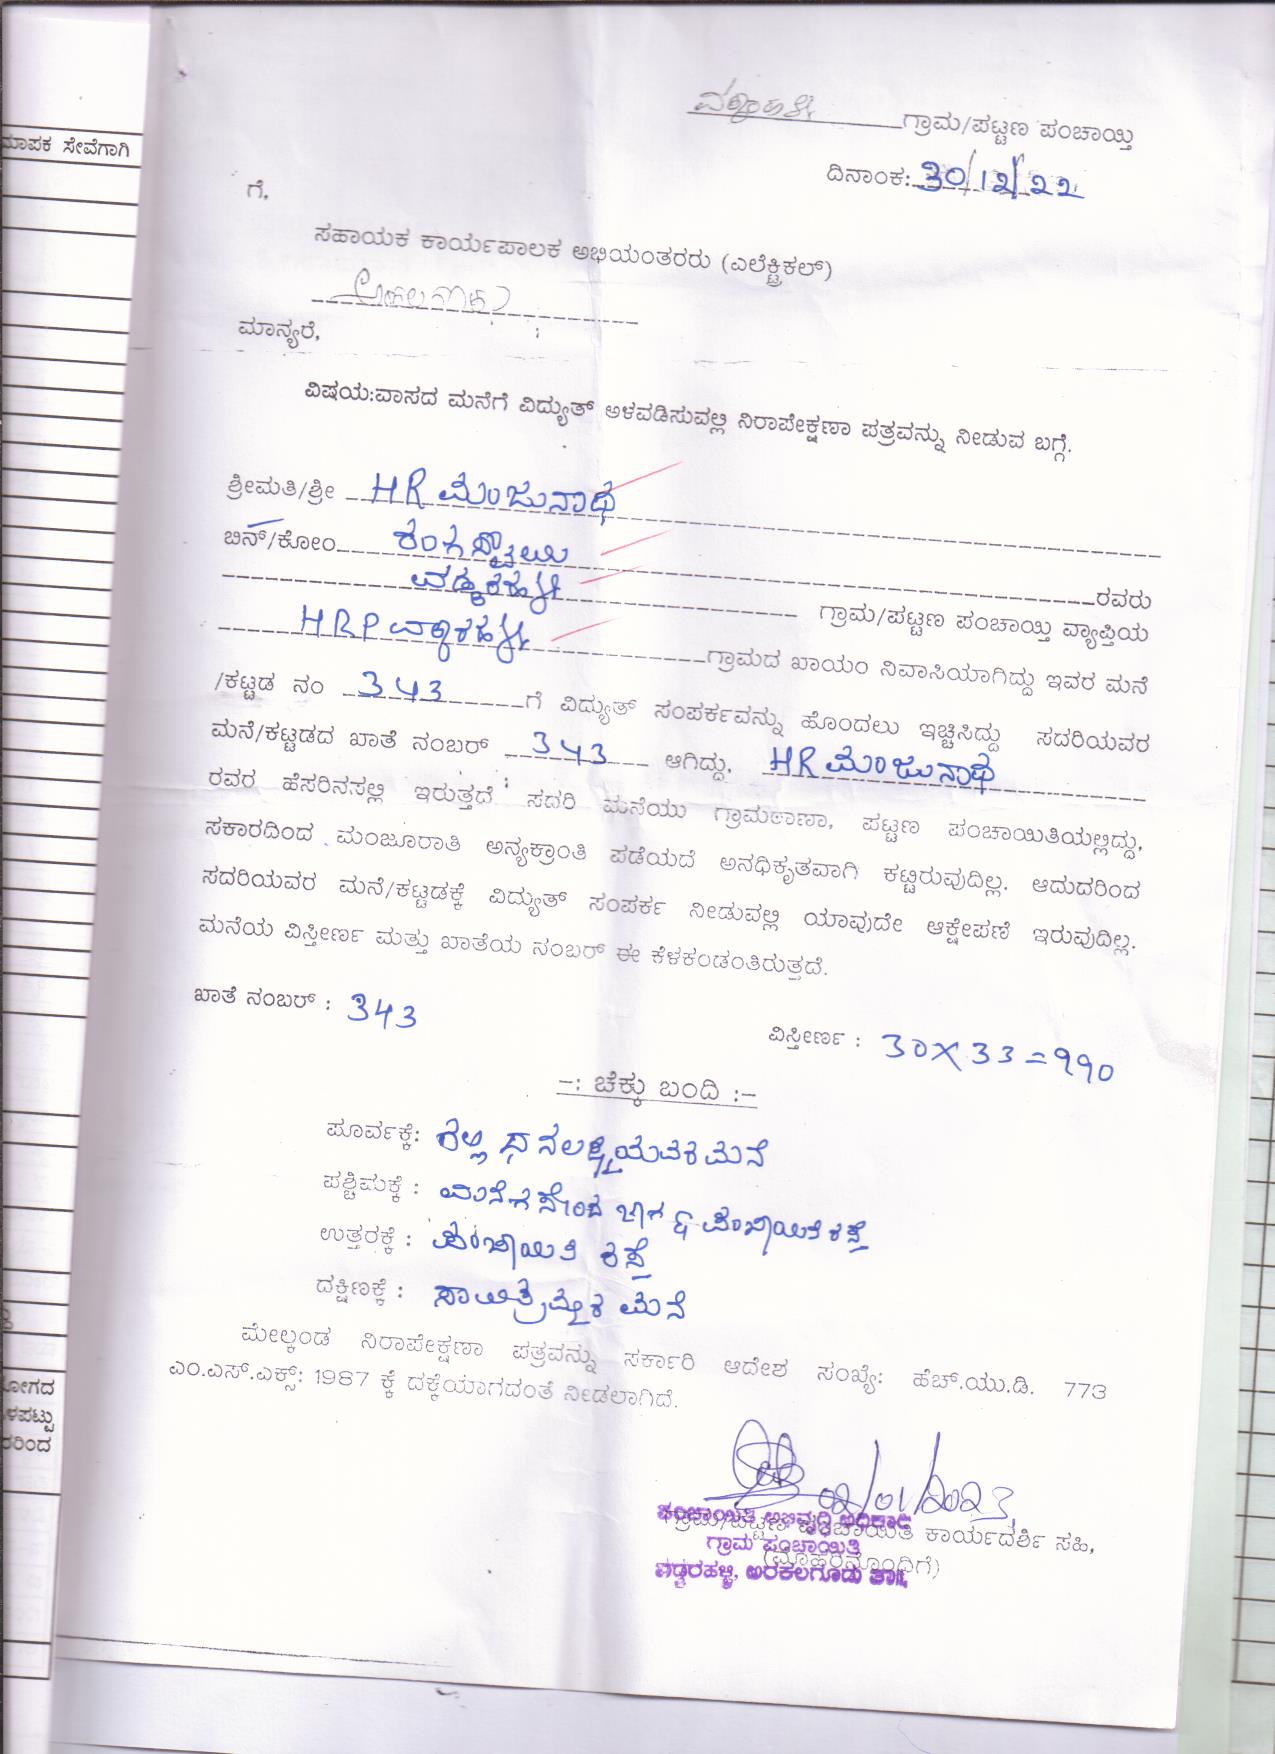 ಮಾಪಕ ಸೇವೆಗಾಗಿ
ಗ್ರಾಮ/ಪಟ್ಟಣ ಪಂಚಾಯ್ತಿ
ದಿನಾಂಕ: 30/12/22
ಗೆ,
ಸಹಾಯಕ ಕಾರ್ಯಪಾಲಕ ಅಭಿಯಂತರರು (ಎಲೆಕ್ಟ್ರಿಕಲ್)
ಮಾನ್ಯರೆ,
ವಿಷಯ:ವಾಸದ ಮನೆಗೆ ವಿದ್ಯುತ್ ಅಳವಡಿಸುವಲ್ಲಿ ನಿರಾಪೇಕ್ಷಣಾ ಪತ್ರವನ್ನು ನೀಡುವ ಬಗ್ಗೆ.
ಶ್ರೀಮತಿ/ಶ್ರೀ HR ಮಂಜುನಾಥ
ಬಿನ್/ಕೋಂ
ರವರು
ವಡ್ಡರಹಳ್ಳಿ ಗ್ರಾಮ/ಪಟ್ಟಣ ಪಂಚಾಯ್ತಿ ವ್ಯಾಪ್ತಿಯ
HRP ವಡ್ಡರಹಳ್ಳಿ ಗ್ರಾಮದ ಖಾಯಂ ನಿವಾಸಿಯಾಗಿದ್ದು ಇವರ ಮನೆ
/ಕಟ್ಟಡ ನಂ 343 ಗೆ ವಿದ್ಯುತ್ ಸಂಪರ್ಕವನ್ನು ಹೊಂದಲು ಇಚ್ಚಿಸಿದ್ದು ಸದರಿಯವರ
ಮನೆ/ಕಟ್ಟಡದ ಖಾತೆ ನಂಬರ್ 343 ಆಗಿದ್ದು, HR ಮಂಜುನಾಥ
ರವರ ಹೆಸರಿನಸಲ್ಲಿ ಇರುತ್ತದೆ ಸದರಿ ಮನೆಯು ಗ್ರಾಮಠಾಣಾ, ಪಟ್ಟಣ ಪಂಚಾಯಿತಿಯಲ್ಲಿದ್ದು,
ಸಕಾರದಿಂದ ಮಂಜೂರಾತಿ ಅನ್ಯಕ್ರಾಂತಿ ಪಡೆಯದೆ ಅನಧಿಕೃತವಾಗಿ ಕಟ್ಟಿರುವುದಿಲ್ಲ. ಆದುದರಿಂದ
ಸದರಿಯವರ ಮನೆ/ಕಟ್ಟಡಕ್ಕೆ ವಿದ್ಯುತ್ ಸಂಪರ್ಕ ನೀಡುವಲ್ಲಿ ಯಾವುದೇ ಆಕ್ಷೇಪಣೆ ಇರುವುದಿಲ್ಲ.
ಮನೆಯ ವಿಸ್ತೀರ್ಣ ಮತ್ತು ಖಾತೆಯ ನಂಬರ್ ಈ ಕೆಳಕಂಡಂತಿರುತ್ತದೆ.
ಖಾತೆ ನಂಬರ್ : 343
ವಿಸ್ತೀರ್ಣ : 30X33=990
-: ಚೆಕ್ಕು ಬಂದಿ :-
ಪೂರ್ವಕ್ಕೆ: ಮನೆ
ಪಶ್ಚಿಮಕ್ಕೆ : ಪಂಚಾಯಿತಿ ರಸ್ತೆ
ಉತ್ತರಕ್ಕೆ : ಪಂಚಾಯಿತಿ ರಸ್ತೆ
ದಕ್ಷಿಣಕ್ಕೆ : ಮನೆ
ಮೇಲ್ಕಂಡ ನಿರಾಪೇಕ್ಷಣಾ ಪತ್ರವನ್ನು ಸರ್ಕಾರಿ ಆದೇಶ ಸಂಖ್ಯೆ: ಹೆಚ್.ಯು.ಡಿ. 773
ಎಂ.ಎಸ್.ಎಕ್ಸ್: 1987 ಕ್ಕೆ ದಕ್ಕೆಯಾಗದಂತೆ ನೀಡಲಾಗಿದೆ.
02/01/2023
ಪಂಚಾಯಿತಿ ಅಭಿವೃದ್ಧಿ ಅಧಿಕಾರಿ
ಗ್ರಾಮ/ಪಟ್ಟಣ ಪಂಚಾಯಿತಿ ಕಾರ್ಯದರ್ಶಿ ಸಹಿ,
ಗ್ರಾಮ ಪಂಚಾಯಿತಿ
(ಮೊಹರಿನೊಂದಿಗೆ)
ವಡ್ಡರಹಳ್ಳಿ, ಅರಕಲಗೂಡು ತಾ||